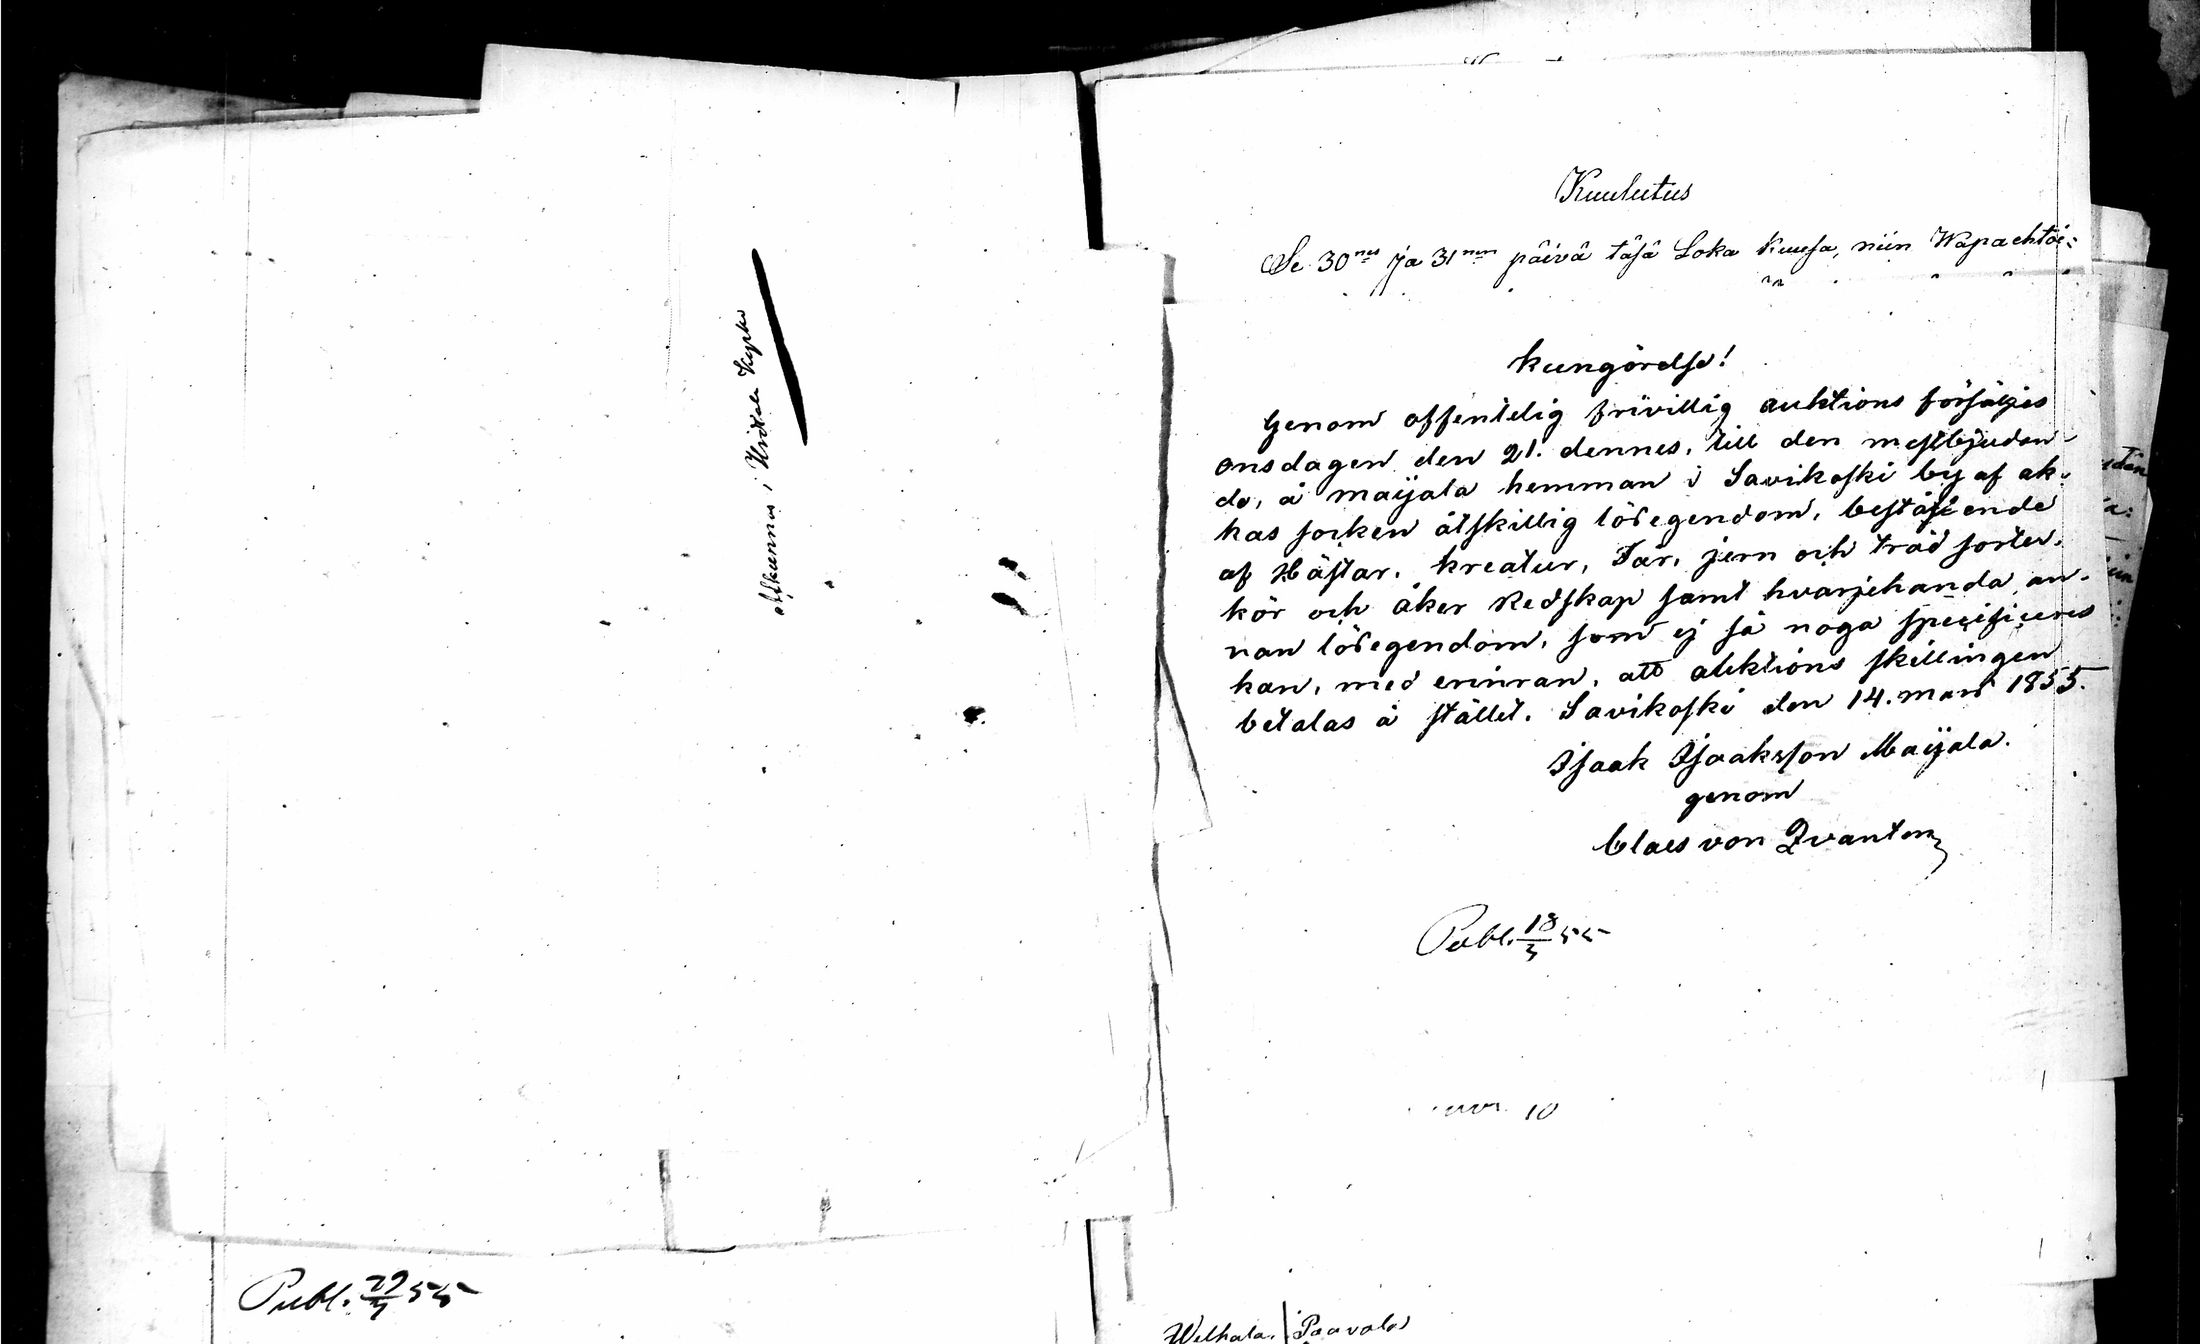 Kuulutus
Se 30nes ja 31nen päivä täsä Loka Kuusa, niin Wapaehtoi:
Kungörelse!
Genom offentelig frivillig auktions försäljes
onsdagen den 21. dennes, till den mestbjudan-
de, å Maijala hemman i Savikoski by af ak-
kas socken åtskillig lösegendom, bestående
af Hästar, kreatur, Får, jern och träd sorter,
kör och åker Redskap samt hvarjehanda an-
nan lösegendom, som ej så noga specificeras
kan, med erinran, att auktions skillingen
betalas å stället. Savikoski den 14. mars 1855.
Isaak Isaaksson Maijala.
genom
Claes von Qvanten
Publ. 18/3 55
10
Publ. 29/4 55
Welhala. Paavola